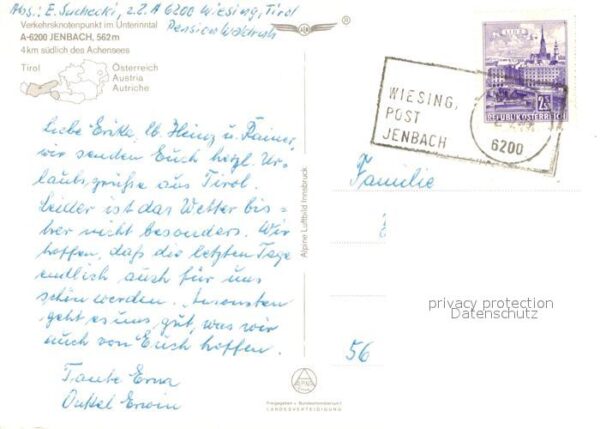 Abs.: E. Suchecki, z.Z. A 6200 Wiesing, Tirol
Pension Waldruh
Verkehrsknotenpunkt im Unterinntal
A-6200 JENBACH, 562m
4km südlich des Achensees
Tirol
Österreich
Austria
Autriche
Liebe Erika, lb. Heinz u. Rainer,
wir senden Euch herzl. Ur-
laubsgrüße aus Tirol.
Leider ist das Wetter bis-
her nicht besonders. Wir
hoffen, daß die letzten Tage
endlich auch für uns
schön werden. Ansonsten
geht es uns gut, was wir
auch von Euch hoffen.
Tante Erna
Onkel Erwin
Alpine Luftbild Innsbruck
ALPINE
Freigegeben v. Bundesministerium f.
LANDESVERTEIDIGUNG
LINZ
2S
REPUBLIK ÖSTERREICH
WIESING,
POST
JENBACH
6200
Familie
56
privacy protection
Datenschutz